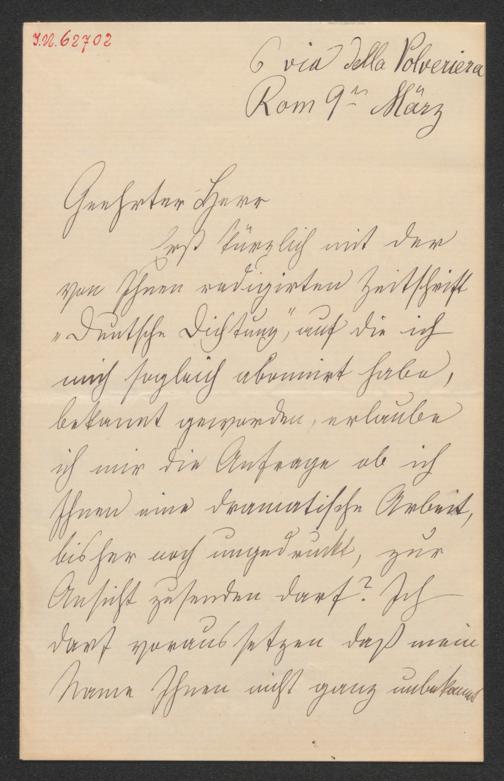 I.N. 62702
6 via della Polveriera
Rom 9n März
Geehrter Herr
Erst kürzlich mit der
von Ihnen redigirten Zeitschrift
„Deutsche Dichtung", auf die ich
mich sogleich abonnirt habe,
bekannt geworden, erlaube
ich mir die Anfrage ob ich
Ihnen eine dramatische Arbeit,
bisher noch ungedruckt, zur
Ansicht zusenden darf? Ich
darf voraussetzen daß mein
Name Ihnen nicht ganz unbekannt